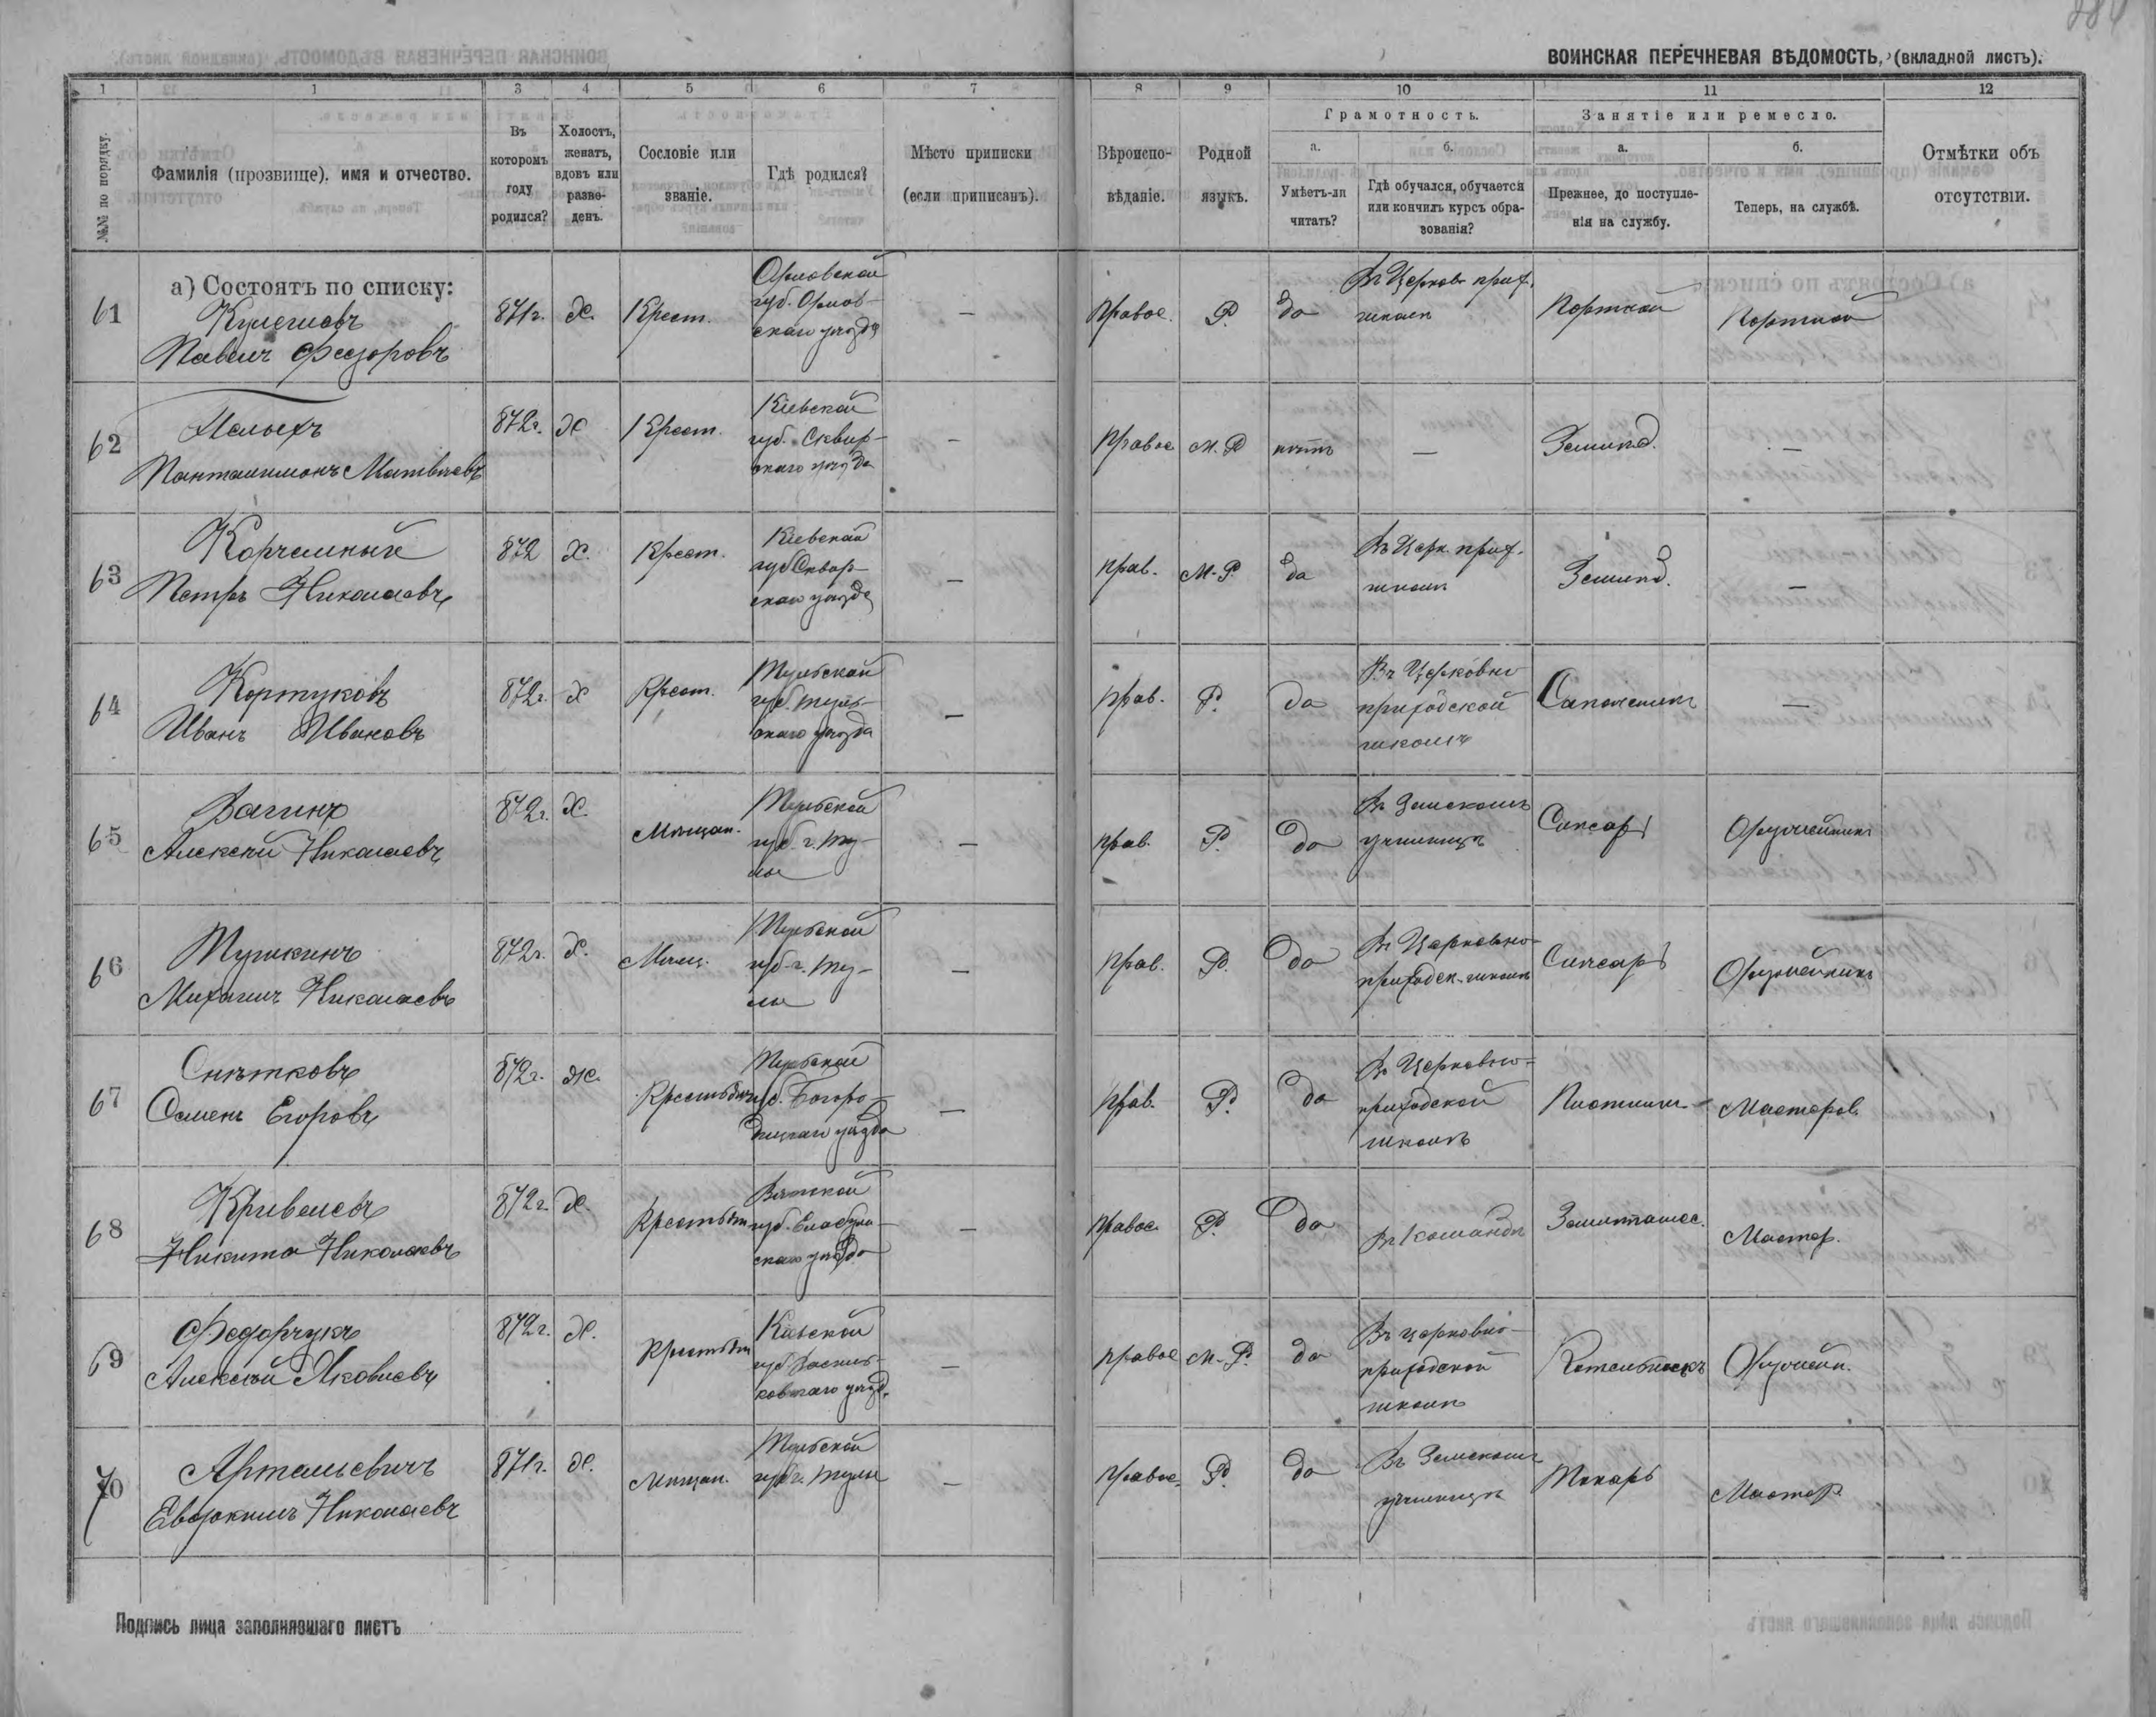 ВОИНСКАЯ ПЕРЕЧНЕВАЯ ВѢДОМОСТЬ, (вкладной листъ).
1 1 3 4 5 6 7 8 9 10 11 12
№№ по порядку.
Фамилія (прозвище), имя и отчество.
Въ которомъ году родился?
Холостъ, женатъ, вдовъ или разве-
денъ.
Сословіе или званіе.
Гдѣ родился?
Мѣсто приписки
(если приписанъ).
Вѣроиспо-
вѣданіе.
Родной языкъ.
Грамотность.
а.
Умѣетъ-ли читать?
б.
Гдѣ обучался, обучается
или кончилъ курсъ обра-
зованія?
Занятіе или ремесло.
а.
Прежнее, до поступле-
нія на службу.
б.
Теперь, на службѣ.
Отмѣтки объ
отсутствіи.
а) Состоятъ по списку:
61 Кулешовъ
Павелъ Федоровъ
871г. Х. Крест.
Орловской
губ. Орлов-
скаго уѣзда
— Правос. Р. да
Въ Церков. прих.
школѣ
Портной Портной
62
Пантелимонъ Матвѣевъ
872г. Х Крест.
Кіевской
губ. Сквир-
скаго уѣзда
— Правос М. Р нѣтъ — Землед. —
63 Корчемный
Петръ Николаевъ
872 Х. Крест.
Кіевской
губ Сквир-
скаго уѣзда
— Прав. М. Р. да
Въ Церк. прих.
школѣ
Землед. —
64 Кортуковъ
Иванъ Ивановъ
872г. Х Крест.
Тульской
губ. Туль-
скаго уѣзда
— Прав. Р. да
Въ Церковно
приходской
школѣ
Сапожникъ —
65 Вагинъ
Алексѣй Николаевъ
872г. Х. Мѣщан.
Тульской
губ. г. Ту-
лы
— Прав. Р. да
Въ Земскомъ
училищѣ
Слесарь Оружейникъ
66 Тушкинъ
Михаилъ Николаевъ
872г. Х. Мѣщ.
Тульской
губ. г. Ту-
лы
— Прав. Р. да
Въ Церковно-
приходск. школѣ
Слесарь Оружейникъ
67 Снѣтковъ
Семенъ Егоровъ
872г. Ж. Крестьян
Тульской
губ. Богоро-
дицкаго уѣзда
— Прав. Р. да
Въ Церковно-
приходской
школѣ
Плотникъ Мастеров.
68 Кривелевъ
Никита Николаевъ
872г. Х. Крестьян
Вятской
губ. Елабуж-
скаго уѣзда
— Правос. Р. да
Въ Командѣ
Мастер.
69 Федорчукъ
Алексѣй Яковлевъ
872г. Х. Крестьян
Кіевской
губ. Василь-
ковскаго уѣзд.
— Правос М. Р. да
Въ церковно-
приходской
школѣ
Котельщикъ Оружейн.
70 Артамьевичъ
Евдокимъ Николаевъ
871г. Х. Мѣщан.
Тульской
губ. г. Тулы
— Правос. Р. да
Въ Земскомъ
училищѣ
Токарь Мастер
Подпись лица заполнявшаго листъ